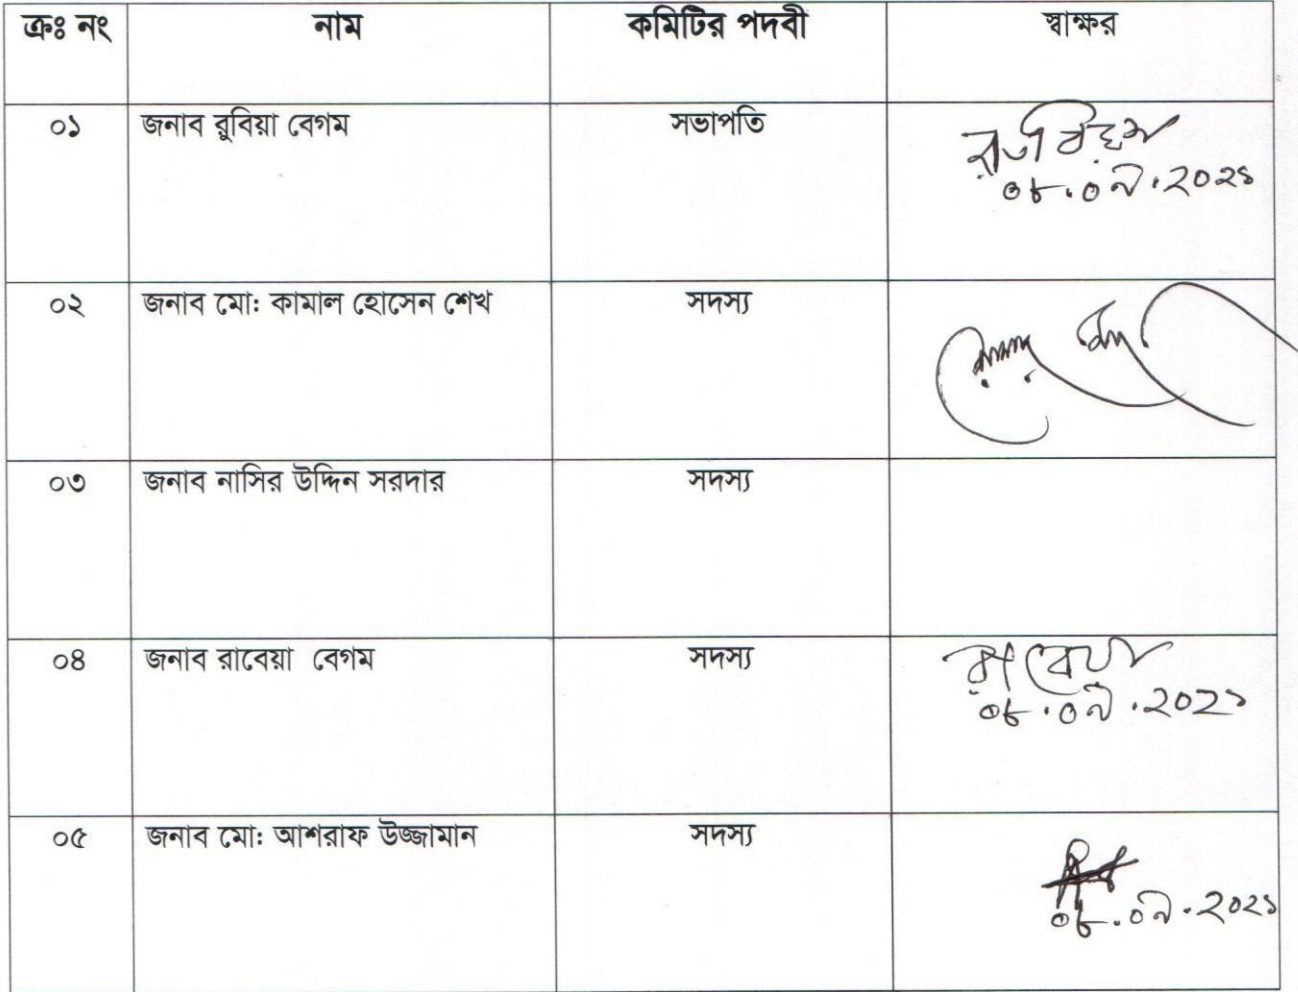 ক্রঃ নং নাম কমিটির পদবী স্বাক্ষর
০১ জনাব রুবিয়া বেগম সভাপতি
০৮.০৯.২০২১
০২ জনাব মো: কামাল হোসেন শেখ সদস্য
০৩ জনাব নাসির উদ্দিন সরদার সদস্য
০৪ জনাব রাবেয়া বেগম সদস্য রাবেয়া
০৮.০৯.২০২১
০৫ জনাব মো: আশরাফ উজ্জামান সদস্য
০৮.০৯.২০২১